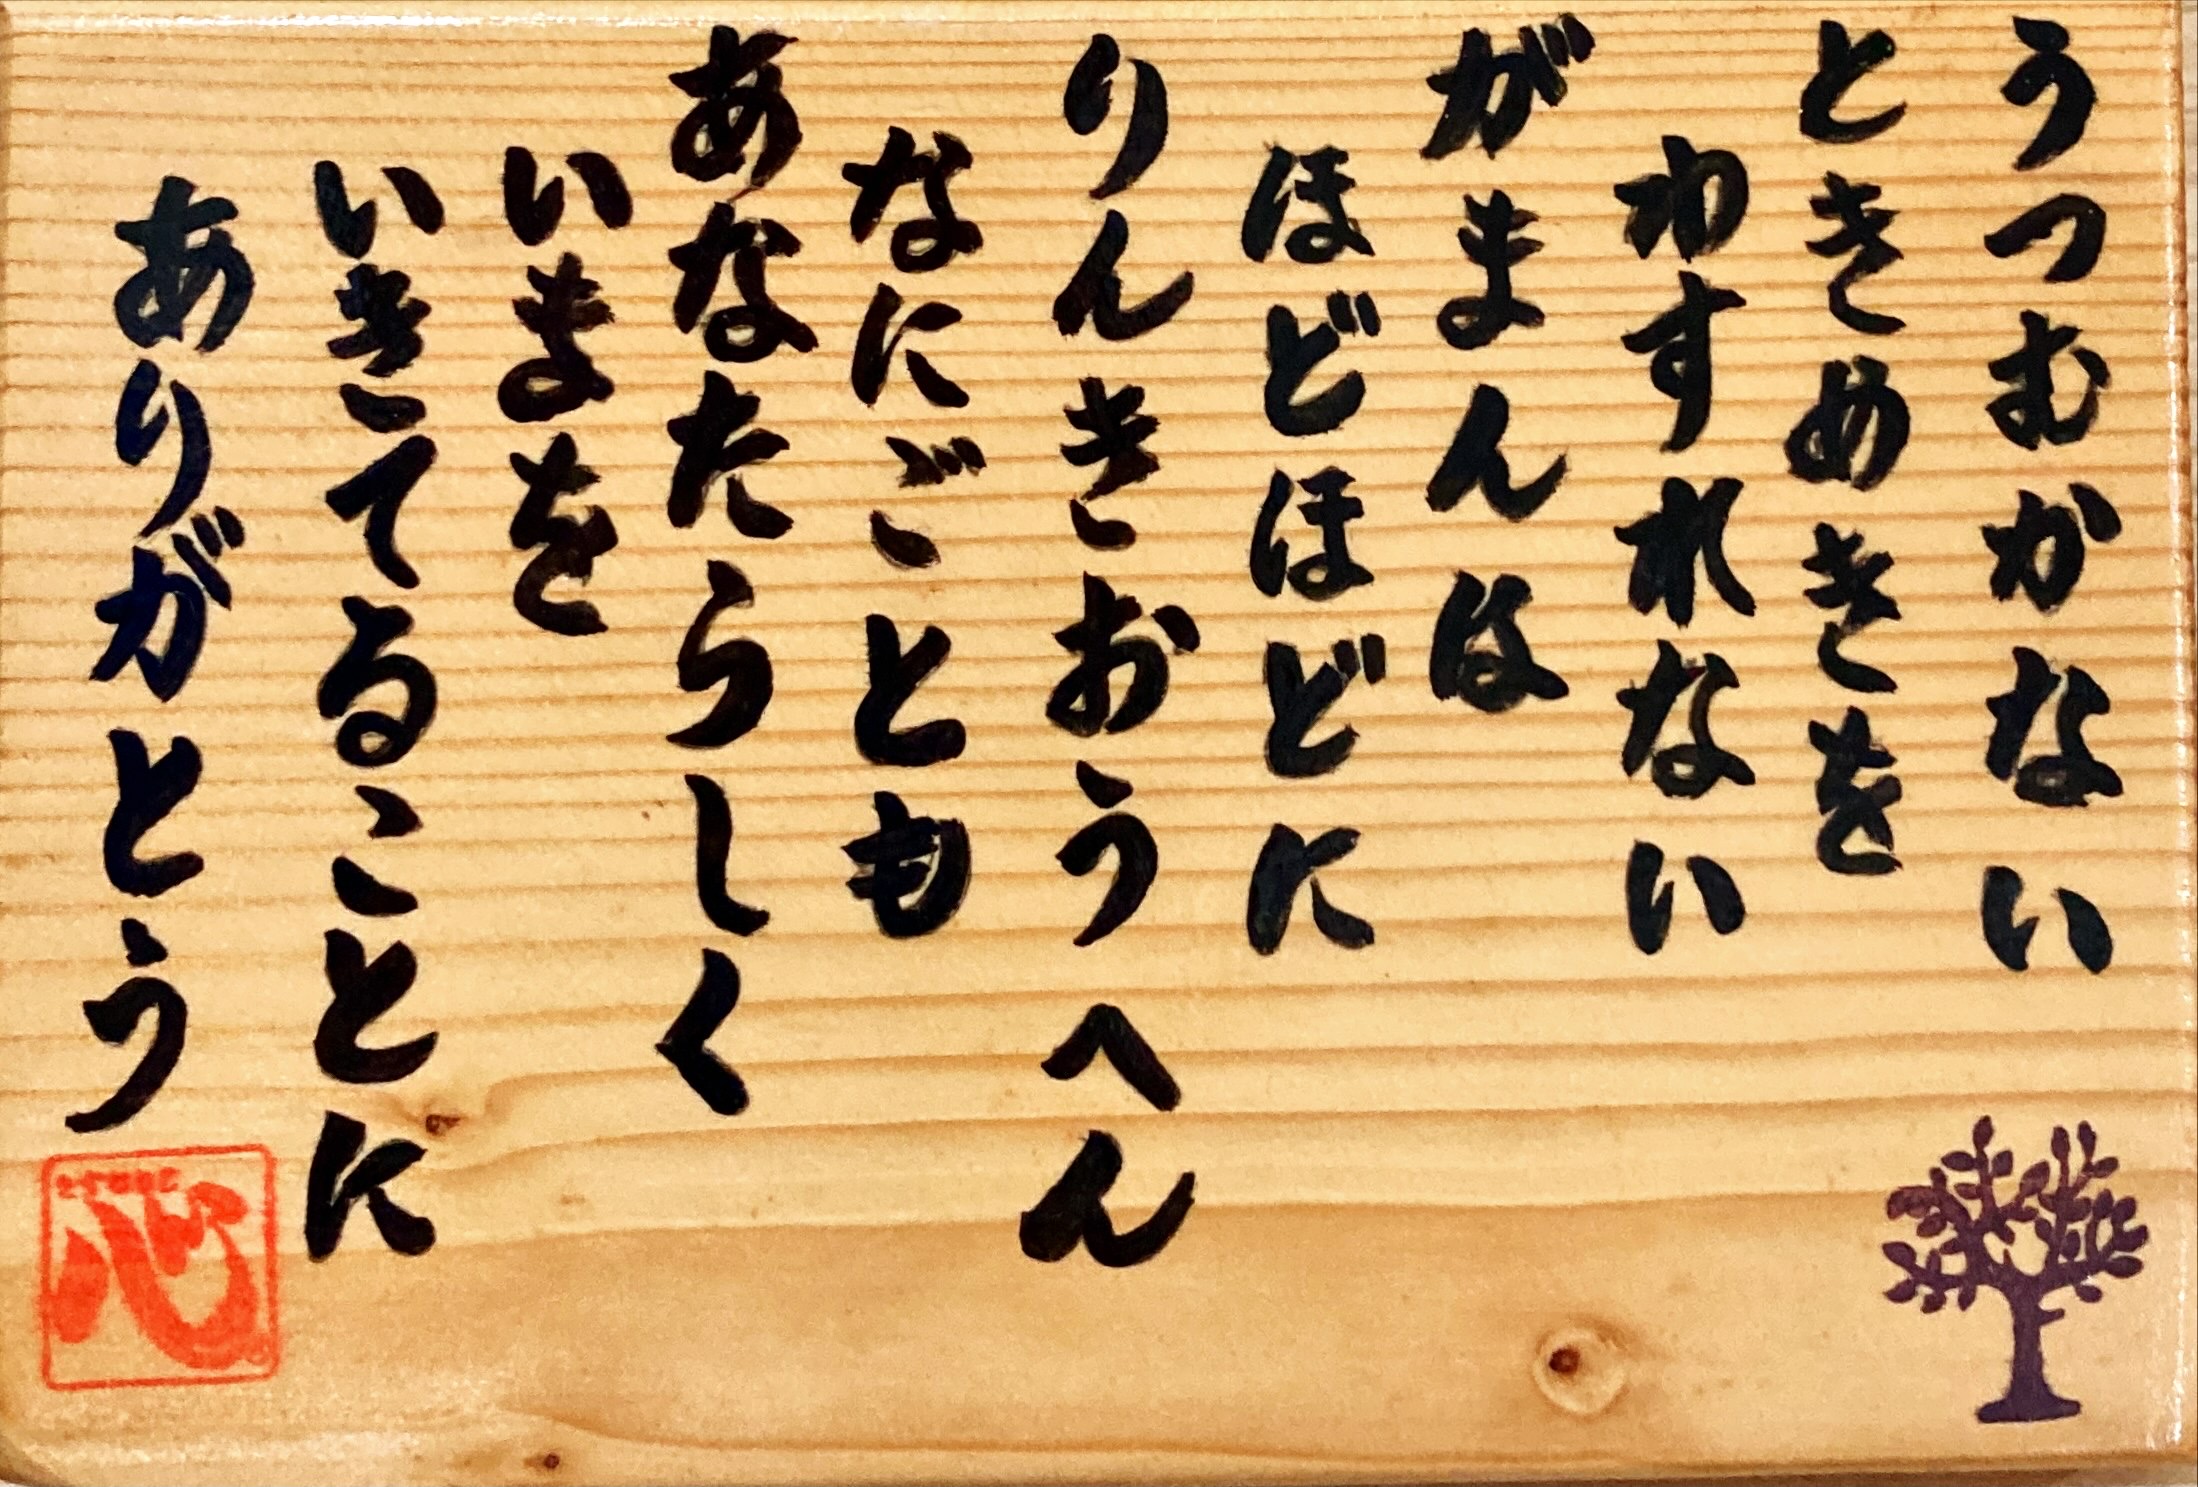 うつむかない
ときめきを
わすれない
がまんは
ほどほどに
りんきおうへん
なにごとも
あなたらしく
いまを
いきてることに
ありがとう
心